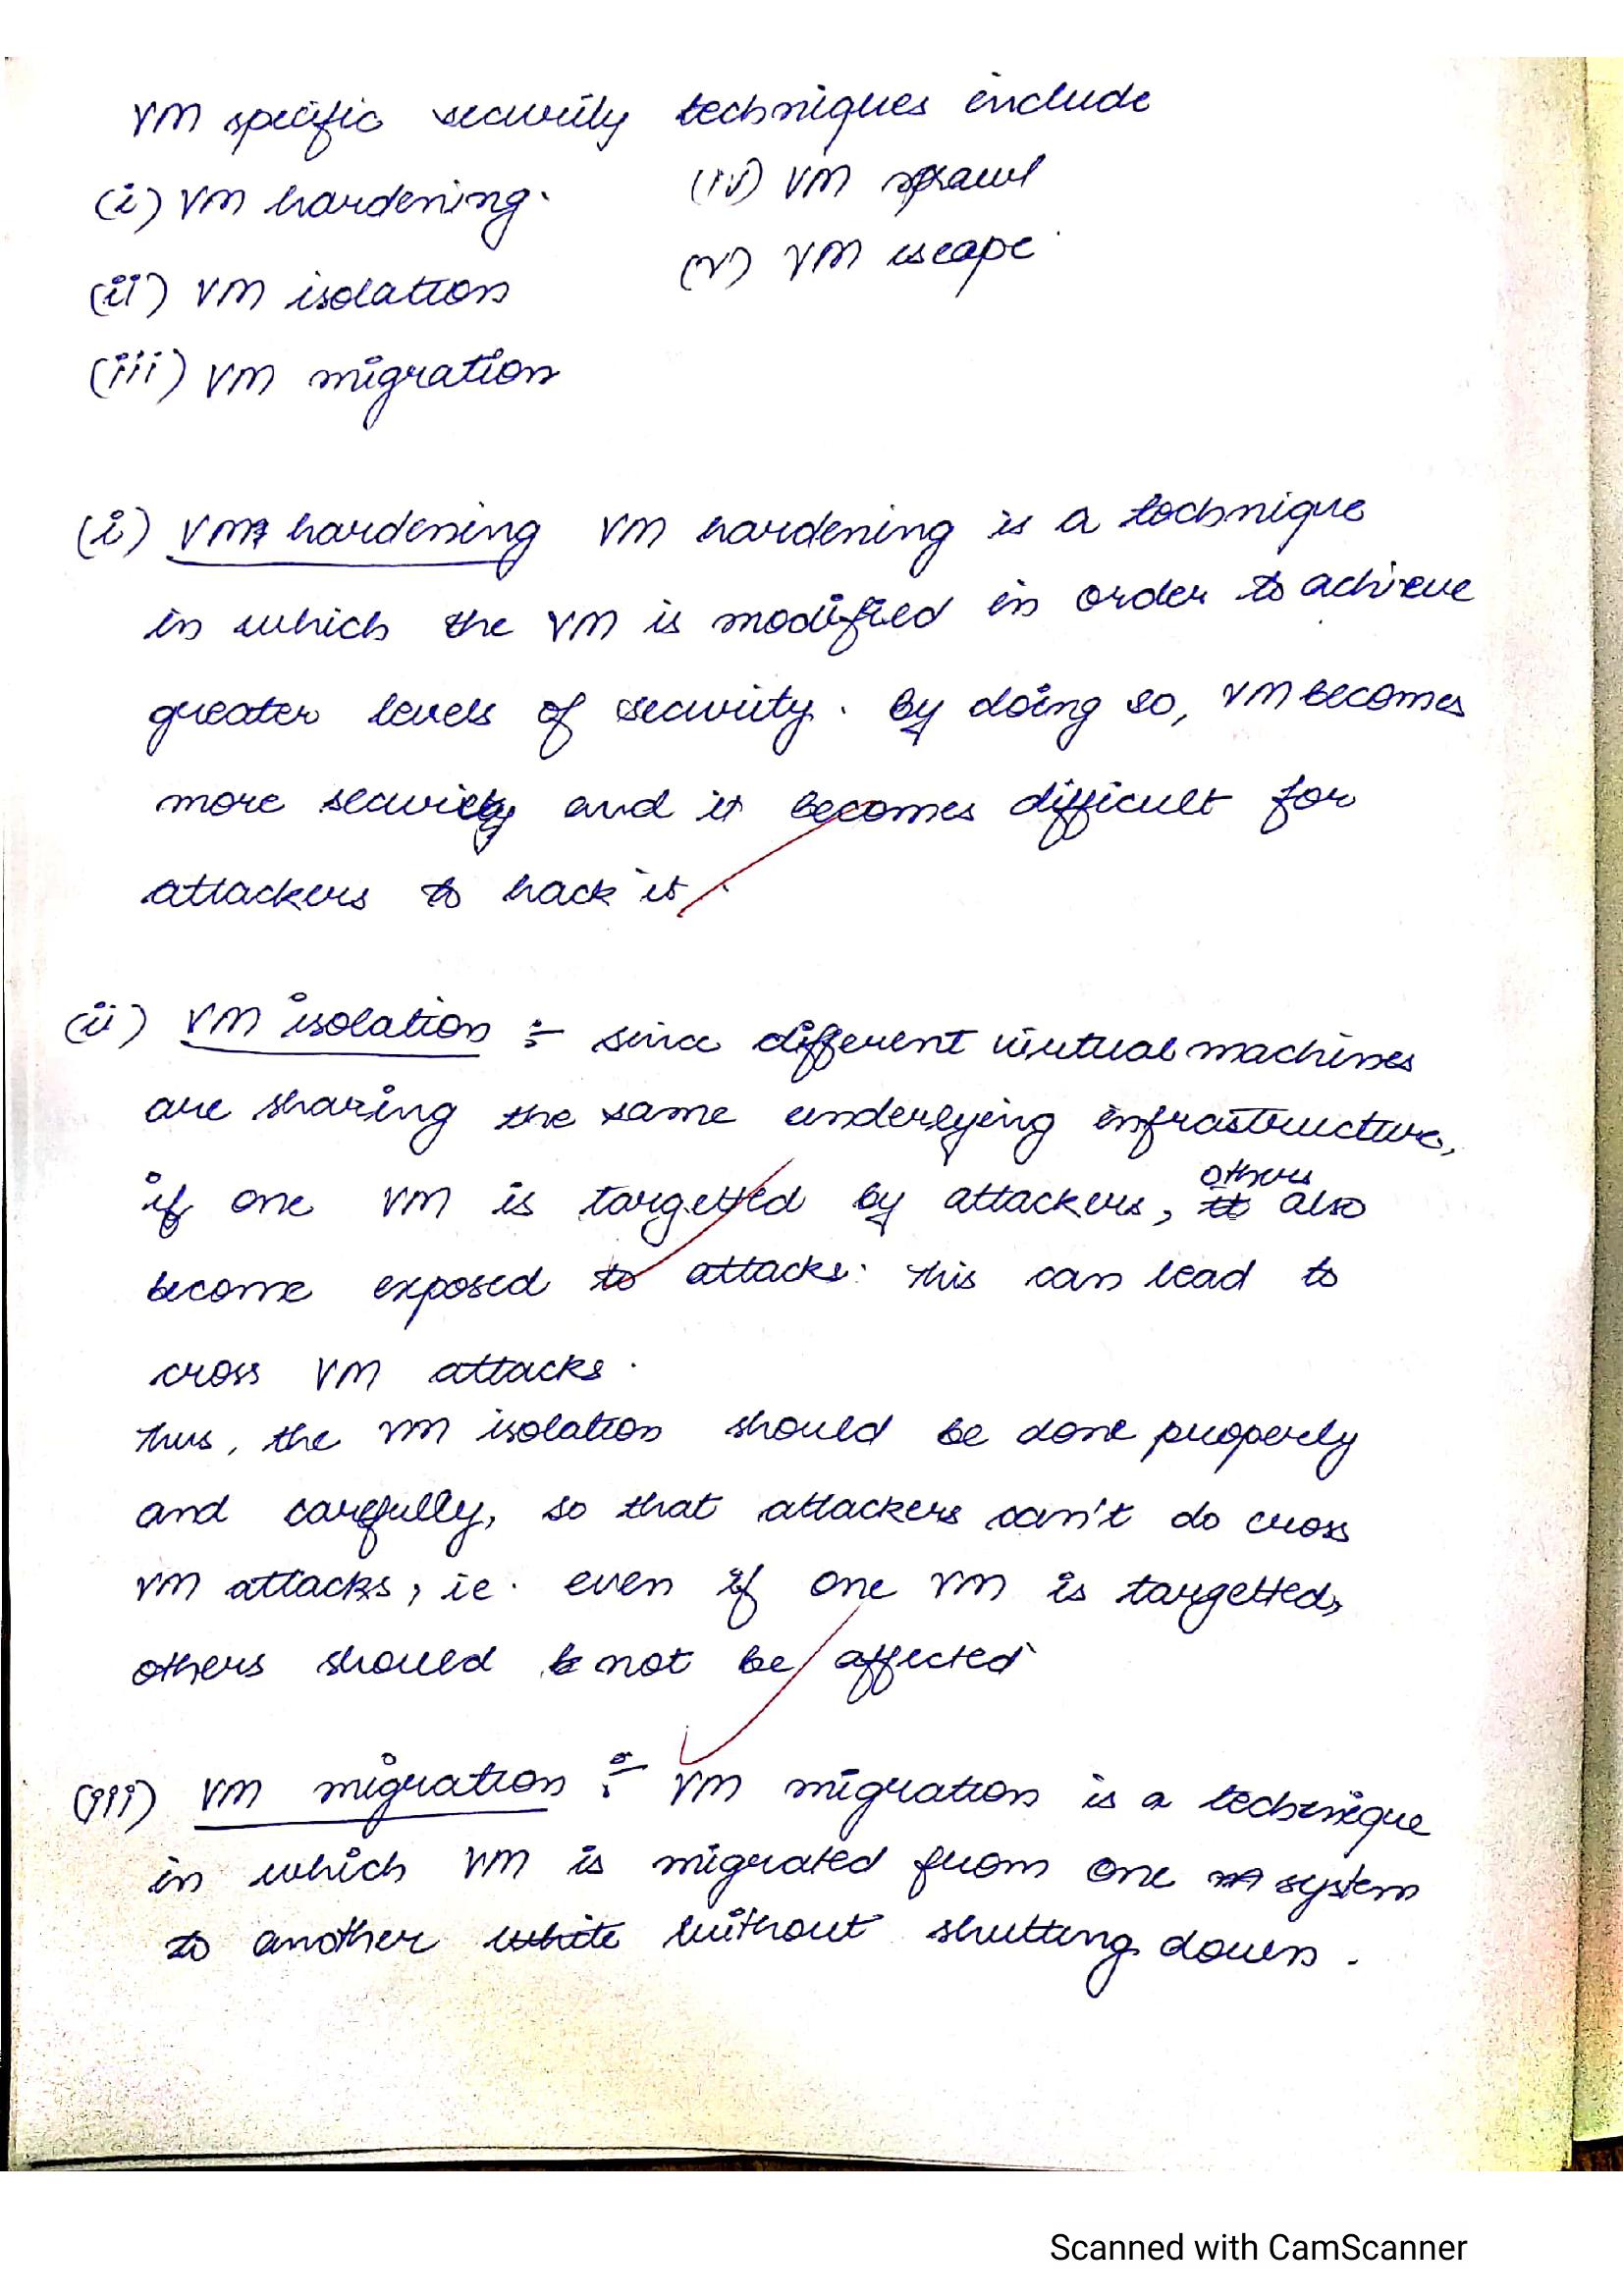 VM specific security techniques include
(i) VM hardening.
(ii) VM isolation
(iii) VM migration
(iv) VM sprawl
(v) VM escape.
(i) VM hardening VM hardening is a technique
in which the VM is modified in order to achieve
greater levels of security. By doing so, VM becomes
more security and it becomes difficult for
attackers to hack it.
(ii) VM isolation :- since different virtual machines
are sharing the same underlying infrastructure,
if one VM is targetted by attackers, others also
become exposed to attacks. This can lead to
cross VM attacks.
Thus, the VM isolation should be done properly
and carefully, so that attackers can't do cross
VM attacks, ie. even if one VM is targetted,
others should not be affected
(iii) VM migration :- VM migration is a technique
in which VM is migrated from one system
to another without shutting down.
Scanned with CamScanner